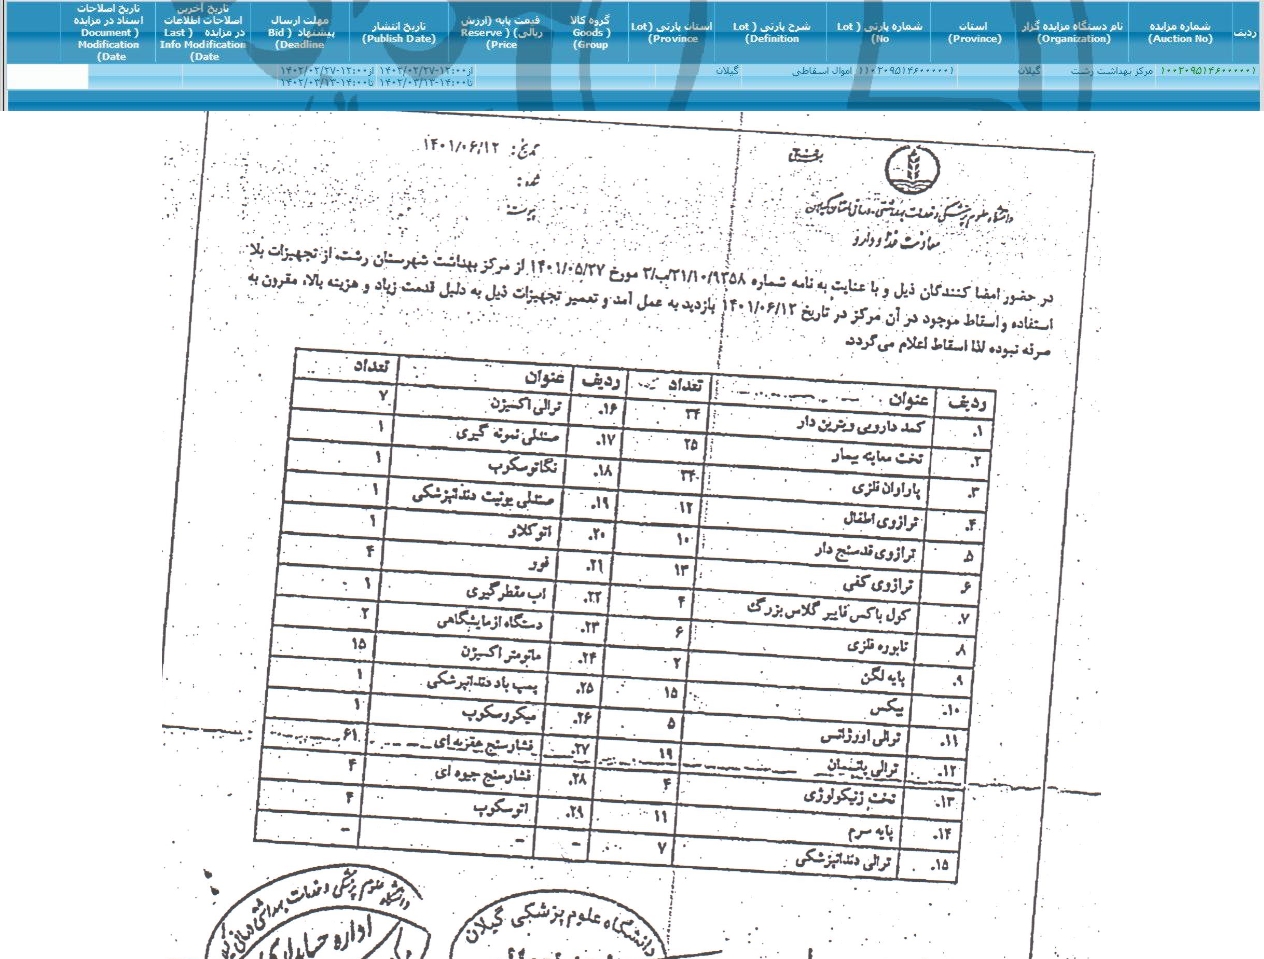 ردیف
شماره مزایده (Auction No)
نام دستگاه مزایده گزار (Organization)
استان (Province)
شماره پارتی ( Lot No)
شرح پارتی ( Lot Definition)
استان پارتی ( Lot Province)
گروه کالا ( Goods Group)
قیمت پایه (ارزش ریالی) ( Reserve Price)
تاریخ انتشار (Publish Date)
مهلت ارسال پیشنهاد ( Bid Deadline)
تاریخ آخرین اصلاحات اطلاعات در مزایده ( Last Info Modification Date)
تاریخ اصلاحات اسناد در مزایده ( Document Modification Date)
۱۰۰۲۰۹۵۱۴۶۰۰۰۰۰۱ مرکز بهداشت رشت گیلان ۱۱۰۲۰۹۵۱۴۶۰۰۰۰۰۱ اموال اسقاطی گیلان از ۱۲:۰۰-۱۴۰۲/۰۲/۲۷ از ۱۲:۰۰-۱۴۰۲/۰۲/۲۷
تا ۱۴:۰۰-۱۴۰۲/۰۳/۱۳ تا ۱۴:۰۰-۱۴۰۲/۰۳/۱۳
تاریخ: ۱۴۰۱/۰۶/۱۲
پیوست:
دانشگاه علوم پزشکی و خدمات بهداشتی، درمانی استان گیلان
معاونت غذا و دارو
در حضور امضا کنندگان ذیل و با عنایت به نامه شماره ۳/پ/۲۱/۱۰/۹۲۵۸ مورخ ۱۴۰۱/۰۵/۲۷ از مرکز بهداشت شهرستان رشت، از تجهیزات بلا
استفاده و اسقاط موجود در آن مرکز در تاریخ ۱۴۰۱/۰۶/۱۲ بازدید به عمل آمد و تعمیر تجهیزات ذیل به دلیل قدمت زیاد و هزینه بالا، مقرون به
صرفه نبوده لذا اسقاط اعلام می‌گردد.
ردیف عنوان تعداد ردیف عنوان تعداد
۱. کمد دارویی ویترین دار ۲۴ ۱۶. ترالی اکسیژن ۷
۲. تخت معاینه بیمار ۲۵ ۱۷. صندلی نمونه گیری ۱
۳. پاراوان فلزی ۲۴ ۱۸. نگاتوسکوپ ۱
۴. ترازوی اطفال ۱۲ ۱۹. صندلی یونیت دندانپزشکی ۱
۵. ترازوی قدسنج دار ۱۰ ۲۰. اتوکلاو ۱
۶. ترازوی کفی ۱۳ ۲۱. فور ۴
۷. کول باکس فایبر گلاس بزرگ ۴ ۲۲. آب مقطرگیری ۱
۸. تابوره فلزی ۶ ۲۳. دستگاه آزمایشگاهی ۲
۹. پایه لگن ۲ ۲۴. مانومتر اکسیژن ۱۵
۱۰. بیکس ۱۵ ۲۵. پمپ باد دندانپزشکی ۱
۱۱. ترالی اورژانس ۵ ۲۶. میکروسکوپ ۱
۱۲. ترالی پانسمان ۱۹ ۲۷. فشارسنج عقربه ای ۶۱
۱۳. تخت ژنیکولوژی ۴ ۲۸. فشارسنج جیوه ای ۴
۱۴. پایه سرم ۱۱ ۲۹. اتوسکوپ ۴
۱۵. ترالی دندانپزشکی ۷ - - -
دانشگاه علوم پزشکی گیلان
دانشگاه علوم پزشکی و خدمات بهداشتی درمانی
اداره حسابداری